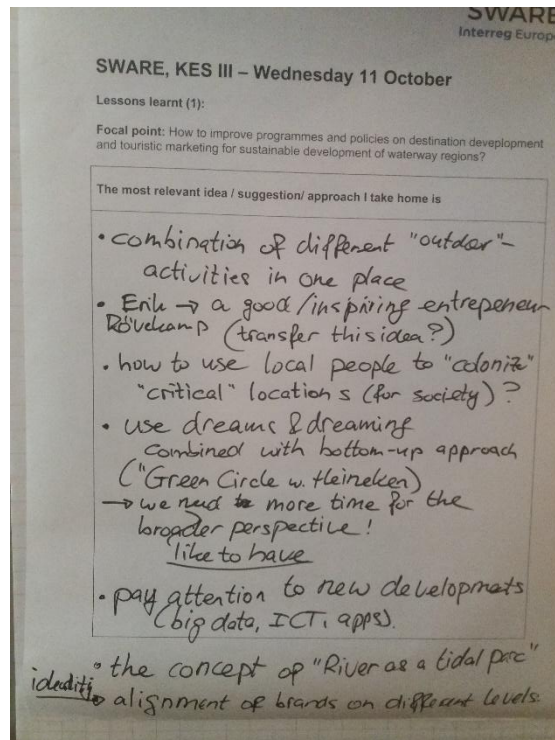 SWARE
Interreg Europ
SWARE, KES III – Wednesday 11 October
Lessons learnt (1):
Focal point: How to improve programmes and policies on destination deveplopment
and touristic marketing for sustainable development of waterway regions?
The most relevant idea / suggestion/ approach I take home is
• combination of different "outdoor"-
activities in one place
• Erik → a good/inspiring entrepeneur
Rövekamp (transfer this idea?)
• how to use local people to "colonize"
"critical" locations (for society)?
• use dreams & dreaming
combined with bottom-up approach
("Green Circle w. Heineken)
→ we need more time for the
broader perspective!
like to have
• pay attention to new developmets
(big data, ICT, apps).
• the concept of "River as a tidal parc"
• alignment of brands on different levels.